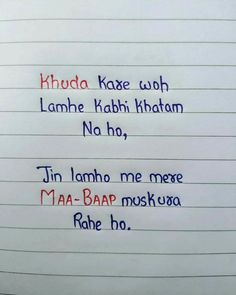 Khuda Kare woh
Lamhe Kabhi Khatam
Na ho,
Jin lamho me mere
MAA-BAAP muskura
Rahe ho.